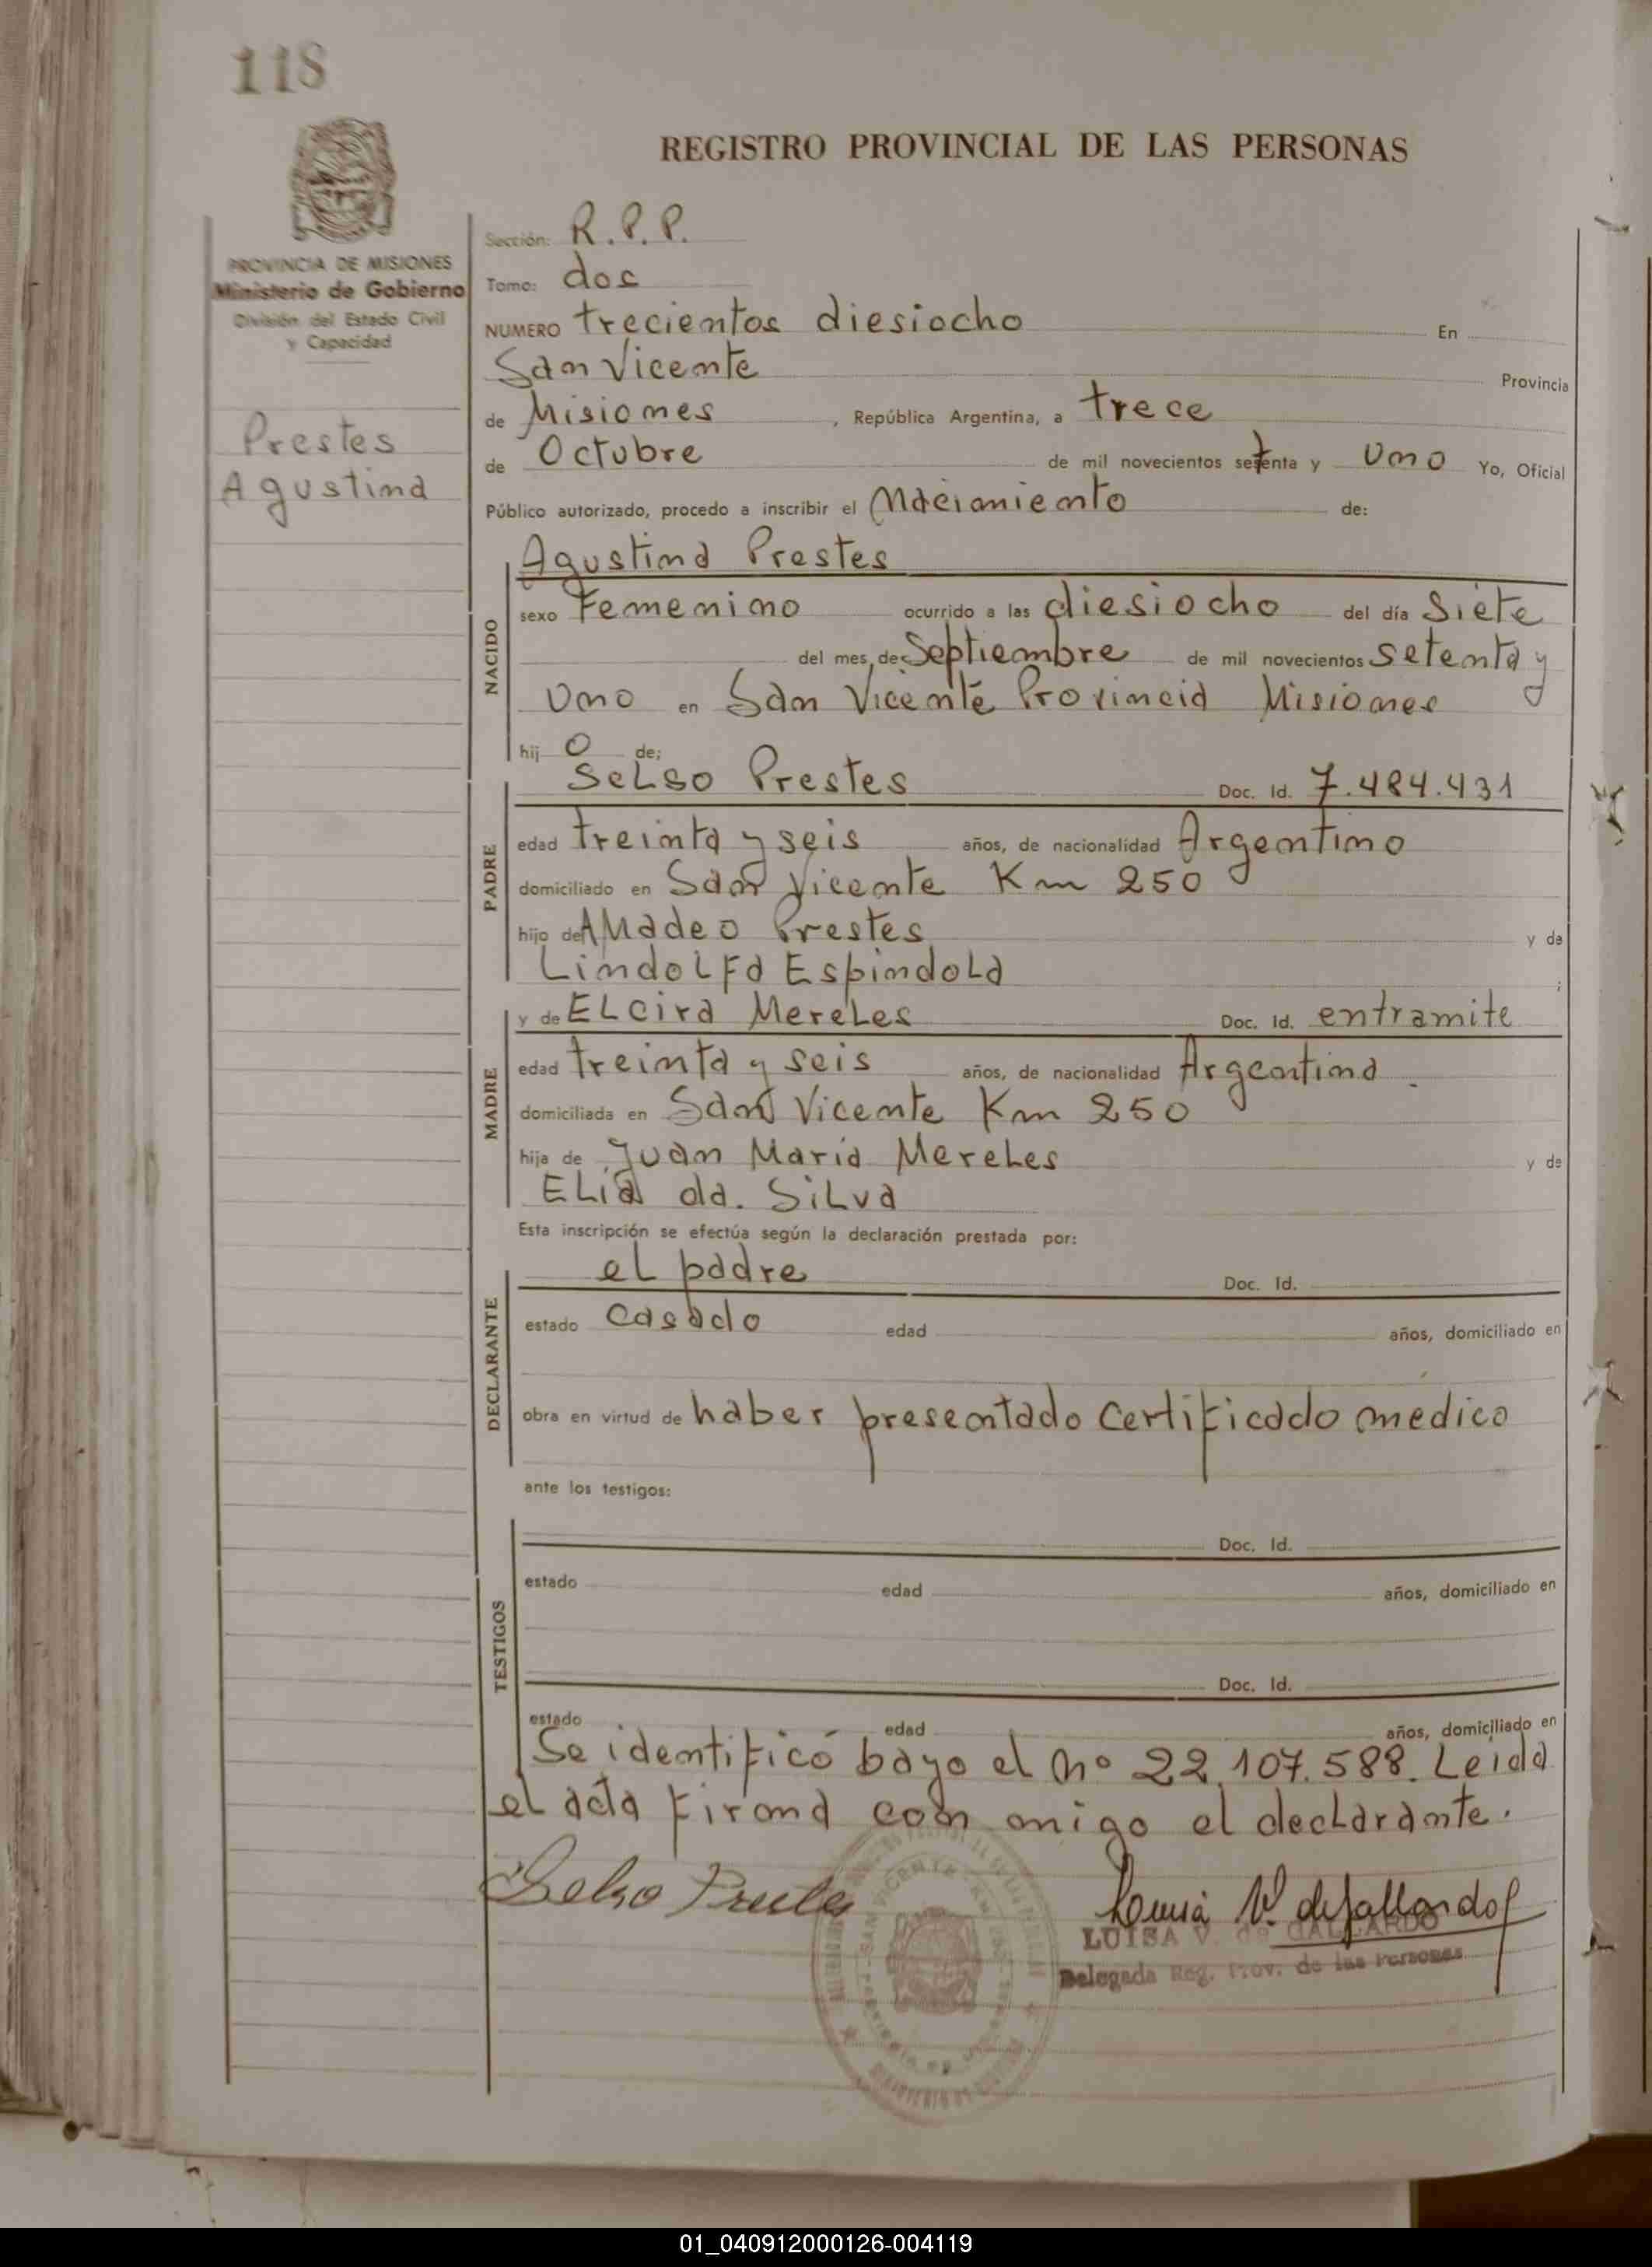 118
REGISTRO PROVINCIAL DE LAS PERSONAS
PROVINCIA DE MISIONES
Ministerio de Gobierno
División del Estado Civil
y Capacidad
Prestes
Agustina
Sección: R.P.P.
Tomo: dos
NUMERO trecientos diesiocho En
San Vicente Provincia
de Misiones, República Argentina, a trece
de Octubre de mil novecientos setenta y uno Yo, Oficial
Público autorizado, procedo a inscribir el Nacimiento de:
NACIDO
Agustina Prestes
sexo Femenino ocurrido a las diesiocho del día Siete
del mes de Septiembre de mil novecientos setenta y
Uno en San Vicente Provincia Misiones
hij o de;
PADRE
SeLso Prestes Doc. Id. 7.484.431
edad treinta y seis años, de nacionalidad Argentino
domiciliado en San Vicente Km 250
hijo de AMadeo Prestes y de
LindoLFa EspindoLa ;
MADRE
y de ELcira MereLes Doc. Id. entramite
edad treinta y seis años, de nacionalidad Argentina.
domiciliada en San Vicente Km 250
hija de Juan Maria MereLes y de
ELia da. SiLva
Esta inscripción se efectúa según la declaración prestada por:
DECLARANTE
eL padre Doc. Id.
estado casado edad años, domiciliado en
obra en virtud de haber presentado certificado medico
ante los testigos:
TESTIGOS
Doc. Id.
estado edad años, domiciliado en
Doc. Id.
estado edad años, domiciliado en
Se identificó bayo el nº 22.107.588. Leida
el acta firma con migo el decLarante.
Selso Prestes
Luisa V. de Gallardo
LUISA V. de GALLARDO
Delegada Reg. Prov. de las Personas
SAN VICENTE
01_040912000126-004119